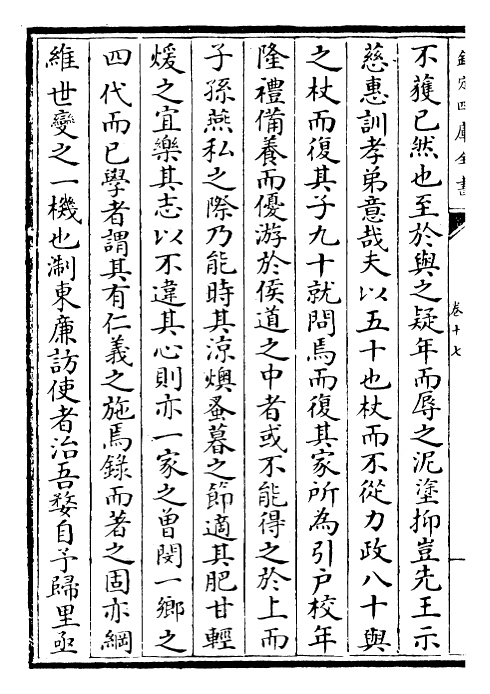 欽定四庫全書
卷十七
不獲已然也至於與之疑年而辱之泥塗抑豈先王示
慈惠訓孝弟意哉夫以五十也杖而不從力政八十與
之杖而復其子九十就問焉而復其家所為引戶校年
隆禮備養而優游於侯道之中者或不能得之於上而
子孫燕私之際乃能時其涼燠蚤暮之節適其肥甘輕
煖之宜樂其志以不違其心則亦一家之曽閔一鄉之
四代而已學者謂其有仁義之施焉錄而著之固亦綱
維世變之一機也淛東廉訪使者治吾婺自予歸里亟